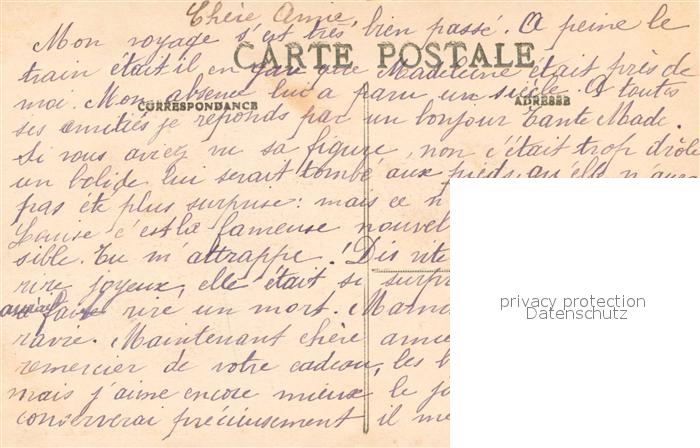 Chère Anne,
Mon voyage s'est très bien passé. A peine le
CARTE POSTALE
train était il en gare que Madeleine était près de
moi. Mon absence lui a paru un siècle. A toutes
CORRESPONDANCE
ADRESSE
ses amitiés je réponds par un bonjour Tante Made.
Si vous aviez vu sa figure, non c'était trop drôle
un bolide lui serait tombé aux pieds, qu'elle n'aura
pas été plus surprise: mais ce n
Louise c'est la fameuse nouvel
sible. Tu m'attrappe! Dis vite
rire joyeux, elle était si surpr
faire rire un mort. Mama
ravie. Maintenant chère anne
remercier de votre cadeau, les b
mais j'aime encore mieux le jo
conserverai précieusement il me
privacy protection
Datenschutz